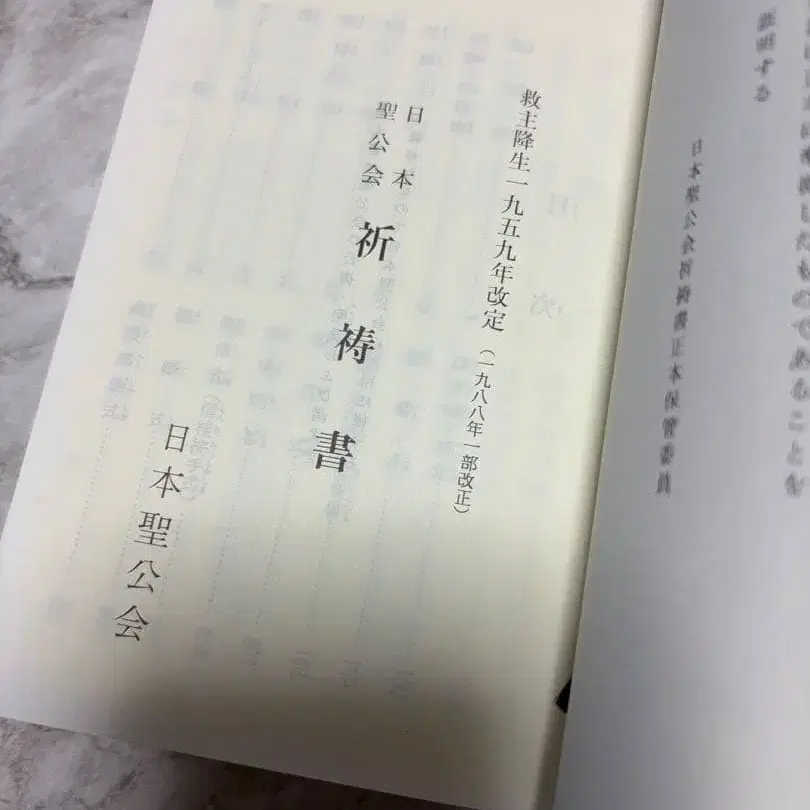 証する
日本聖公会祈祷書正本保管委員
救主降生一九五九年改定（一九八八年一部改正）
日本
聖公会
祈祷書
日本聖公会